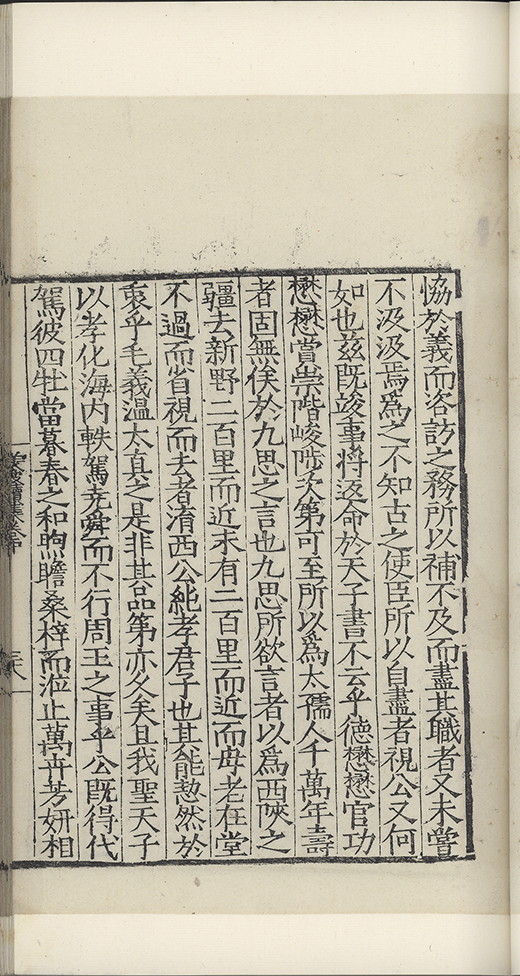 恊於義而咨訪之務所以補不及而盡其職者又未嘗
不汲汲焉爲之不知古之使臣所以自盡者視公又何
如也兹既竣事将返命於天子書不云乎德懋懋官功
懋懋賞崇階峻陟次第可至所以爲太孺人千萬年壽
者固無俟於九思之言也九思所欲言者以爲西陝之
疆去新野二百里而近未有二百里而近而母老在堂
不過而省視而去者淯西公純孝君子也其能恝然於
衷乎毛義溫太真之是非甚品第亦久矣且我聖天子
以孝化海内軼駕堯舜而不行周王之事乎公既得代
駕彼四牡當暮春之和煦瞻桑梓而涖止萬卉芳妍相